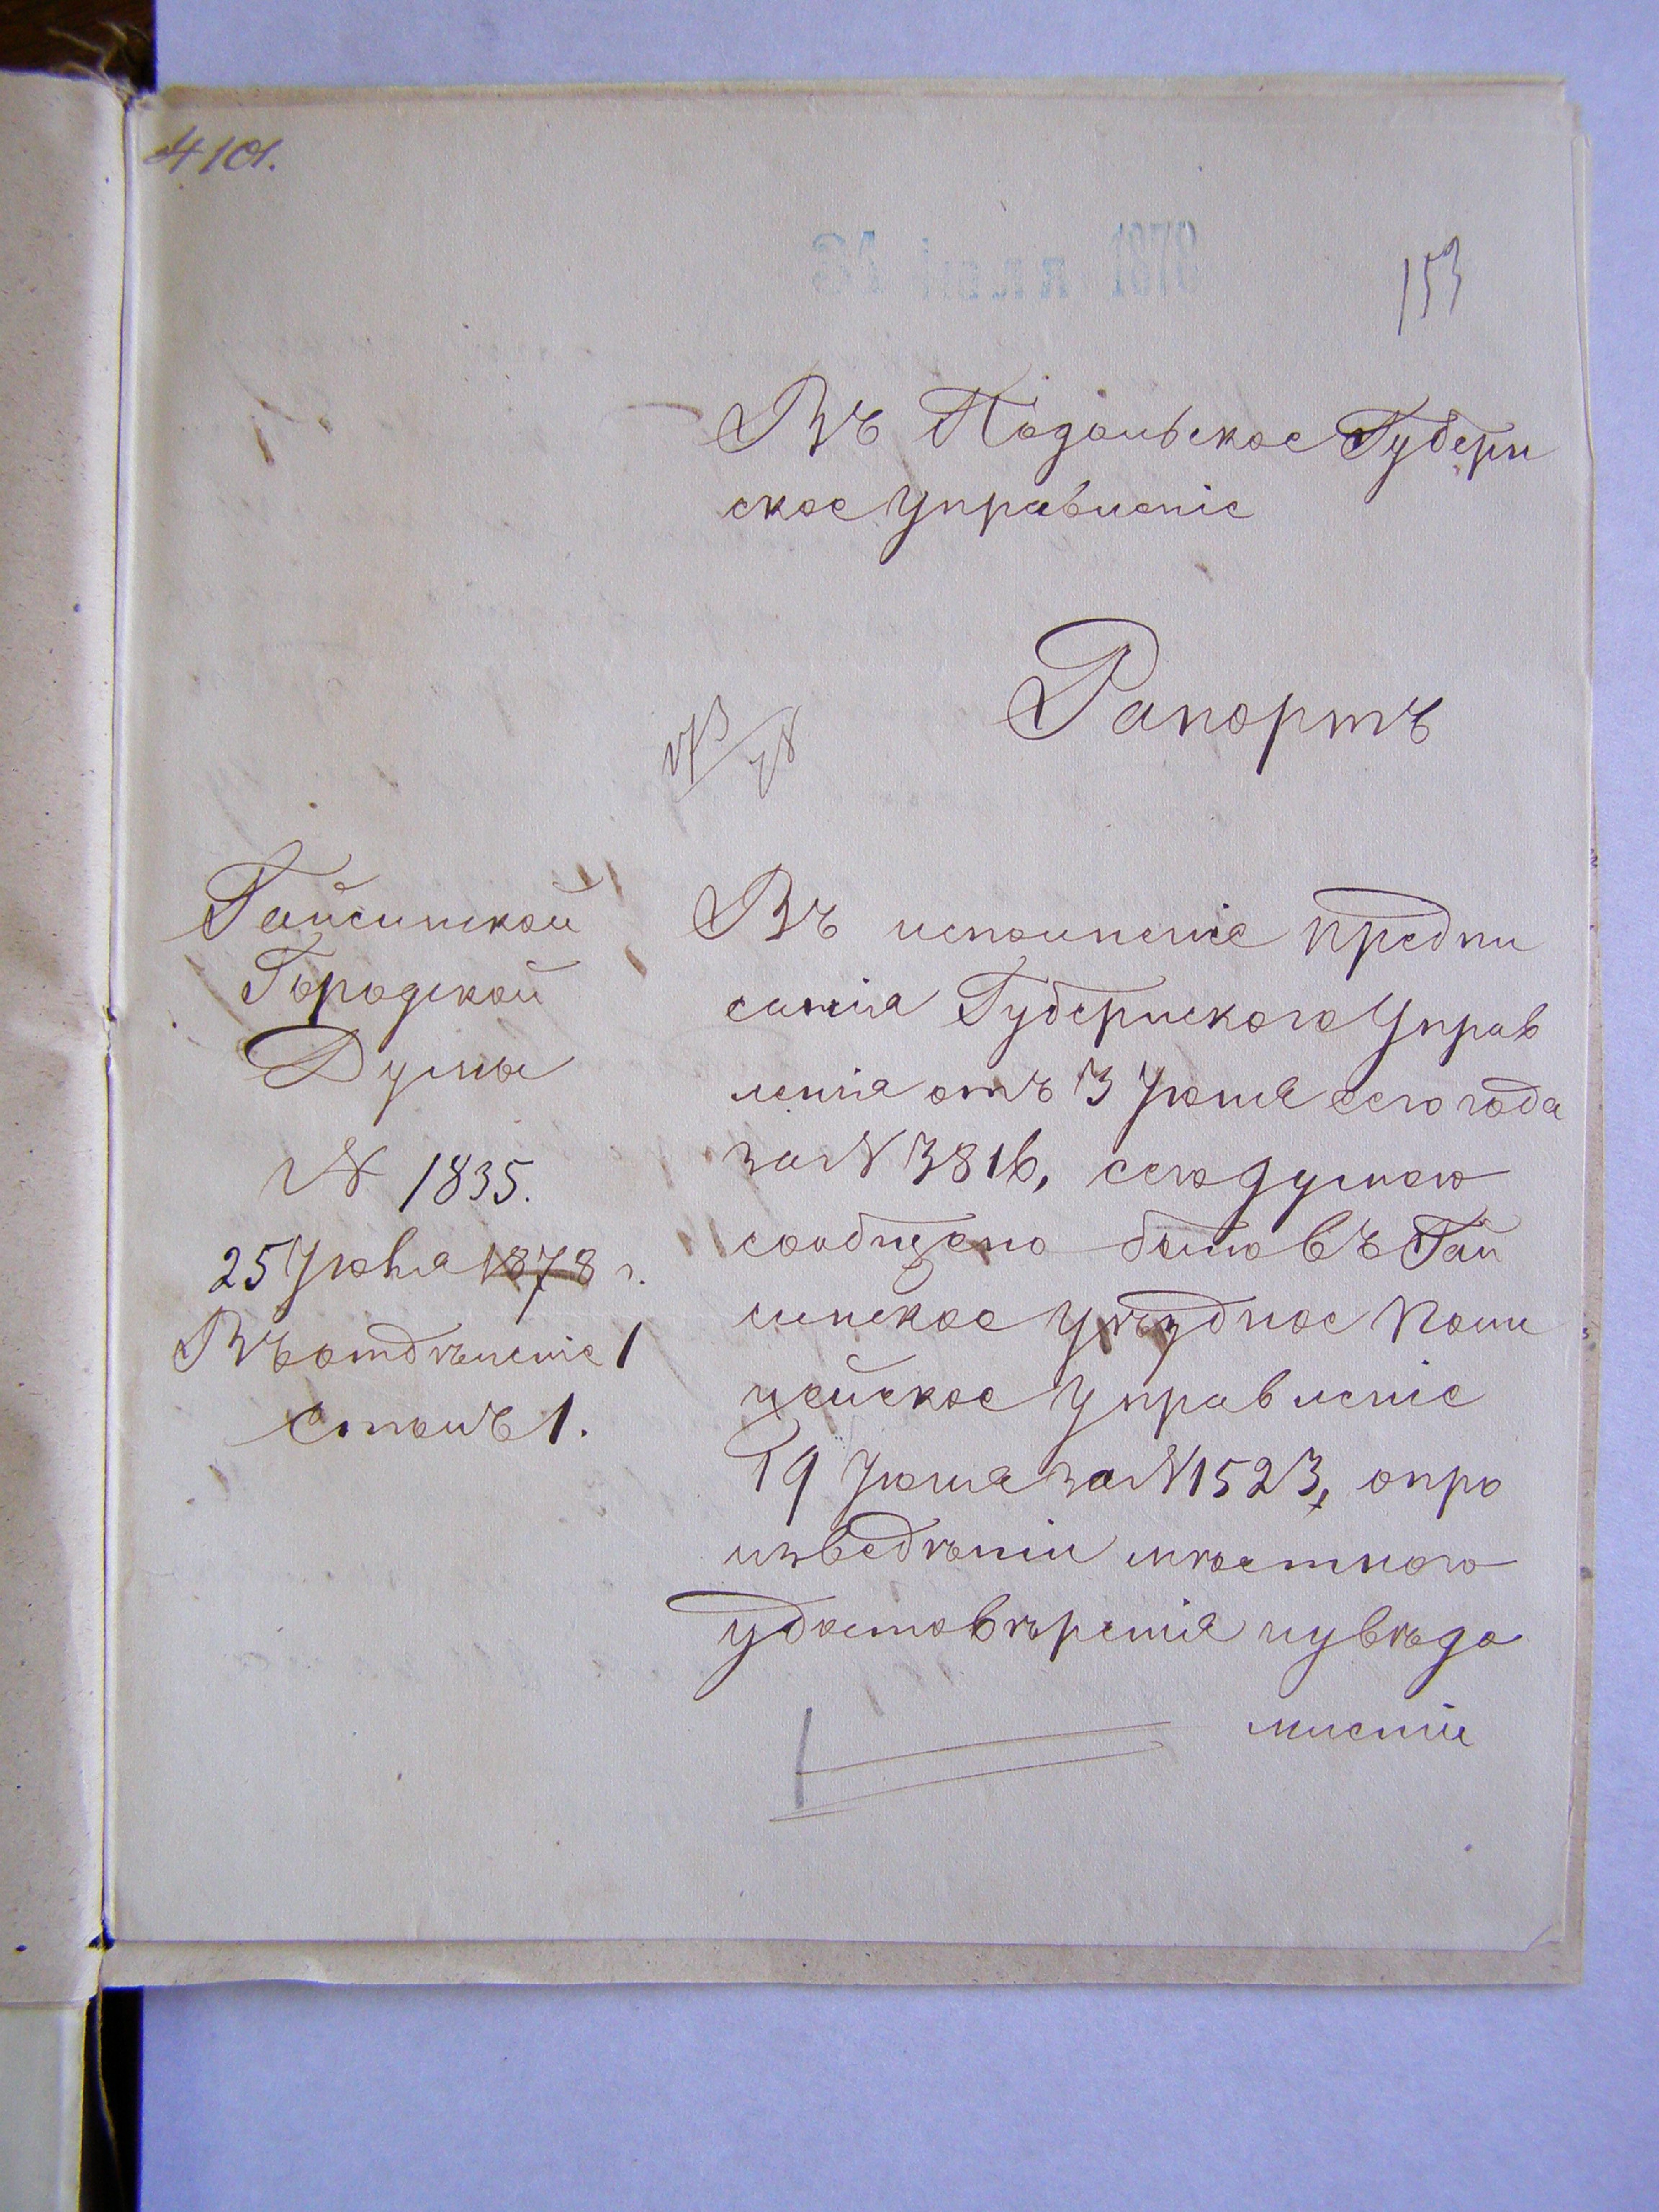 4101.
153
Въ Подольское Губерн
ское Управленіе
Рапортъ
Гайсинской
Городской
Думы
№ 1835.
25 Іюня 1878 г.
Въ отдѣленіе 1
столъ 1.
Въ исполненіе предпи
санія Губернского Управ
ленія отъ 3 Іюня сего года
за № 3816, сею думою
сообщено было въ Гай
синское Уѣздное Поли
цейское Управленіе
19 Іюня за № 1523, о про
изведѣніи мѣстного
удостовѣренія и увѣдо
мленіи